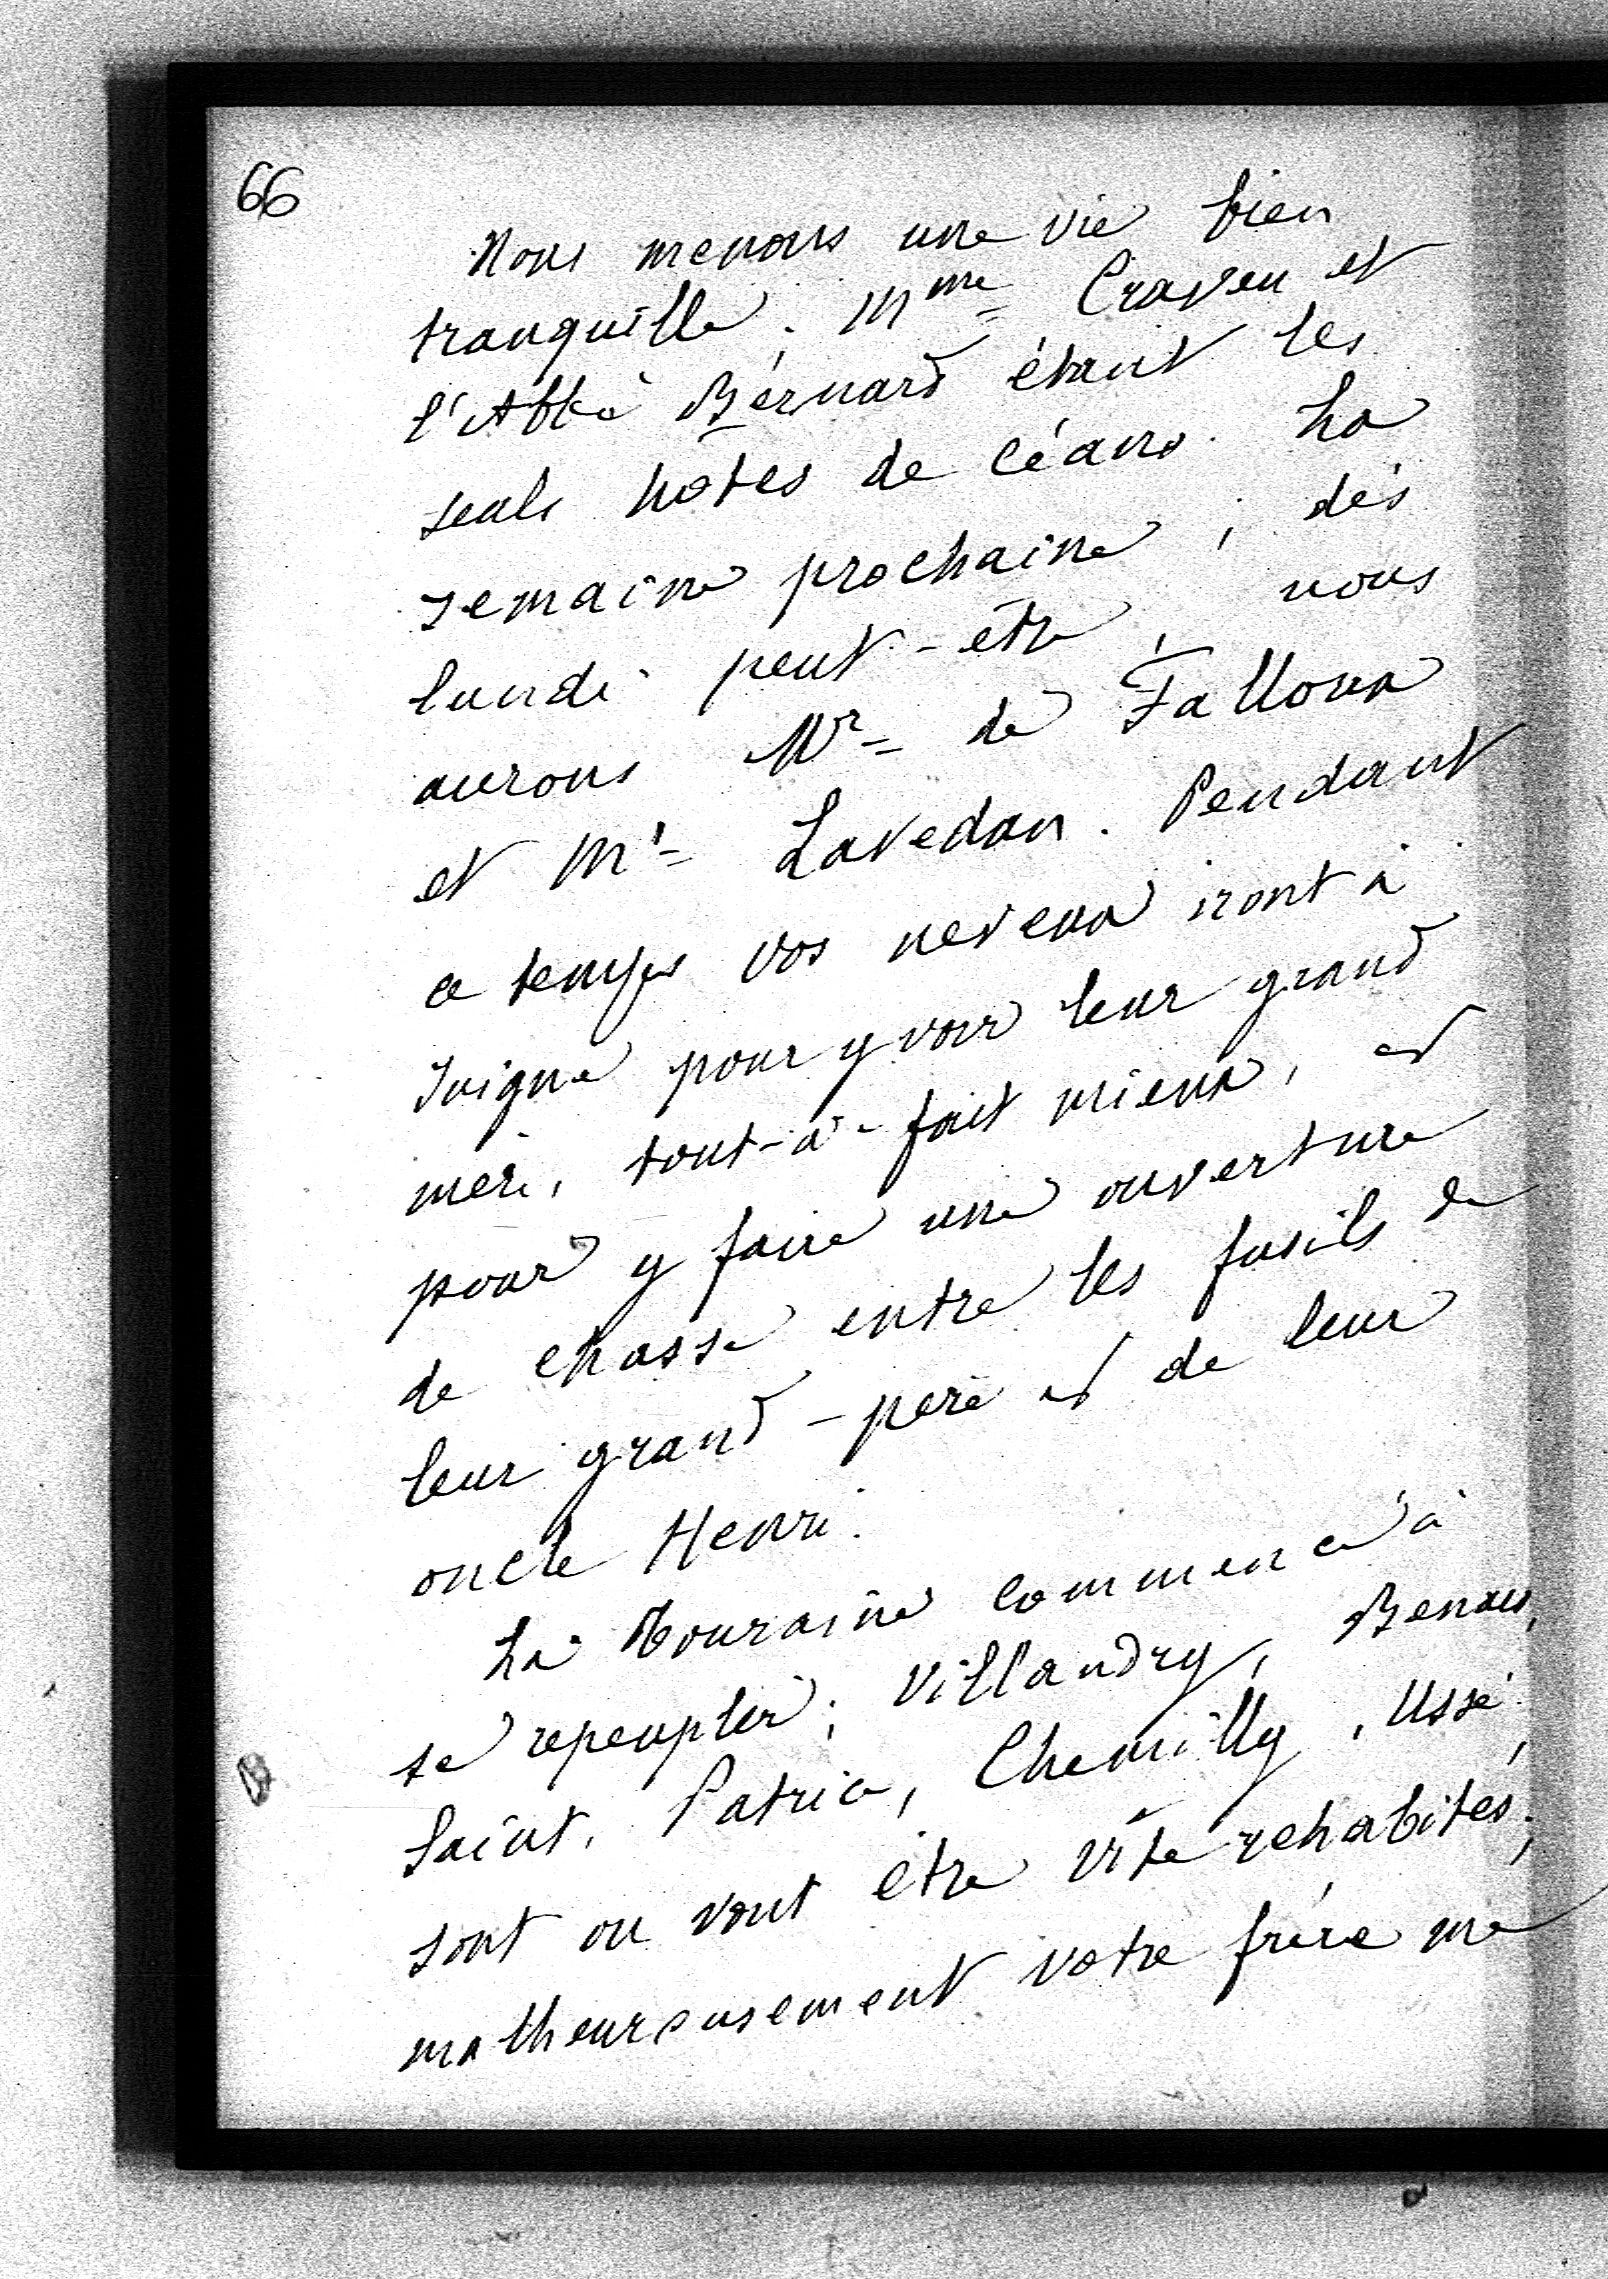 66
Nous menons une vie bien
tranquille ; Mme Craven et
l'Abbé Bernard étant les
seuls hôtes de céans. La
semaine prochaine, dès
lundi peut-être, nous
aurons Mr de Falloux
et Mr Lavedan. Pendant
ce temps vos neveux iront à
pour y voir leur grand
mère, tout-à-fait mieux, et
pour y faire une ouverture
de chasse entre les fusils de
leur grand-père et de leur
oncle Henri.
La Touraine commence à
se repeupler ; Villandry, Benais,
Saint. Patrice, Chemilly, Ussé,
sont ou vont être vite rehabités ;
malheureusement votre frère me